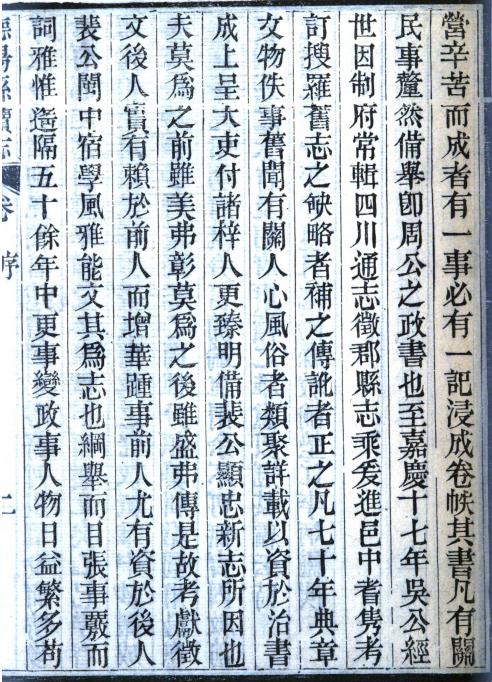 營辛苦而成者有一事必有一記浸成卷帙其書凡有關
民事釐然備舉卽周公之政書也至嘉慶十七年吳公經
世因制府常輯四川通志徵郡縣志乘爰進邑中耆雋考
訂搜羅舊志之缺略者補之傳訛者正之凡七十年典章
文物佚事舊聞有關人心風俗者類聚詳載以資於治書
成上呈大吏付諸梓人更臻明備裴公顯忠新志所因也
夫莫爲之前雖美弗彰莫爲之後雖盛弗傳是故考獻徵
文後人實有賴於前人而增華踵事前人尤有資於後人
裴公閩中宿學風雅能文其爲志也綱舉而目張事覈而
詞雅惟遥隔五十餘年中更事變政事人物日益繁多苟
德陽縣續志 卷 序 二